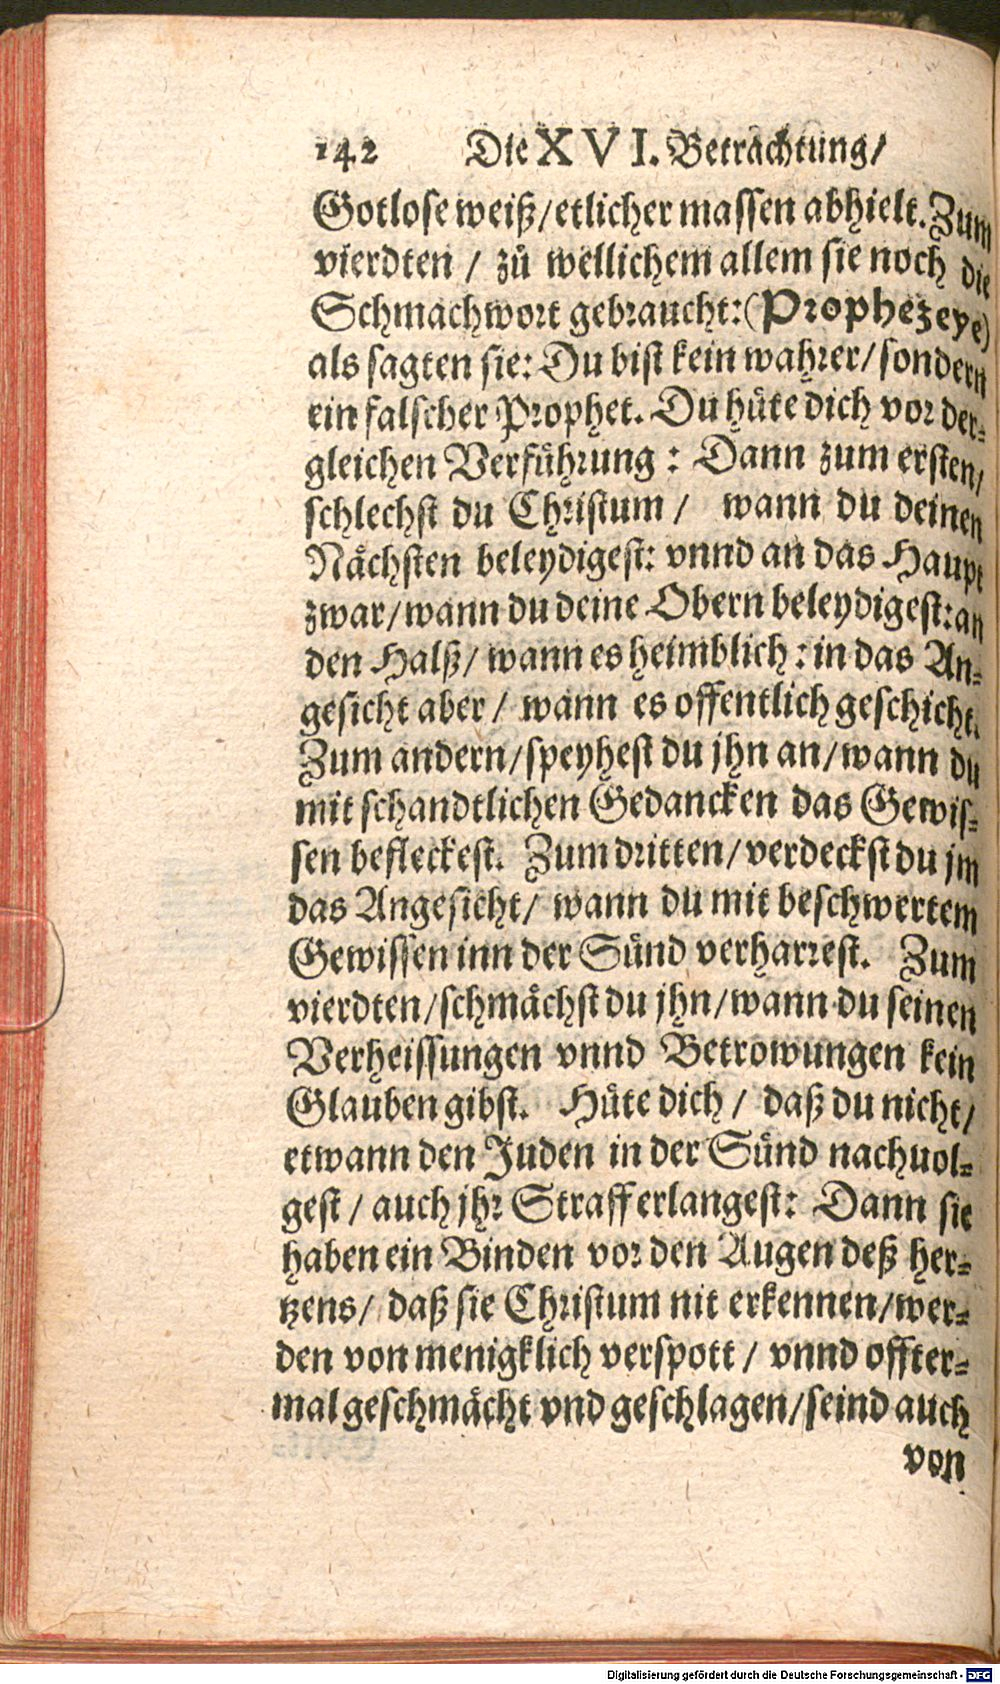 142 Die XVI. Betrachtung/
Gotlose weiß/etlicher massen abhielt. Zum
vierdten / zů wellichem allem sie noch die
Schmachwort gebraucht: (Prophezeye)
als sagten sie: Du bist kein wahrer/sondern
ein falscher Prophet. Du hüte dich vor der-
gleichen Verführung : Dann zum ersten/
schlechst du Christum / wann du deinen
Nächsten beleydigest: vnnd an das Haupt
zwar/wann du deine Obern beleydigest: an
den Halß/ wann es heimblich : in das An-
gesicht aber / wann es offentlich geschicht.
Zum andern/speyhest du jhn an/wann du
mit schandtlichen Gedancken das Gewis-
sen befleckest. Zum dritten/verdeckst du jm
das Angesicht/ wann du mit beschwertem
Gewissen inn der Sünd verharrest. Zum
vierdten/schmächst du jhn/wann du seinen
Verheissungen vnnd Betrowungen kein
Glauben gibst. Hüte dich / daß du nicht/
etwann den Juden in der Sünd nachuol-
gest / auch jhr Straff erlangest: Dann sie
haben ein Binden vor den Augen deß her-
tzens/ daß sie Christum nit erkennen/wer-
den von menigklich verspott / vnnd offter-
mal geschmächt vnd geschlagen/seind auch
von
Digitalisierung gefördert durch die Deutsche Forschungsgemeinschaft - DFG